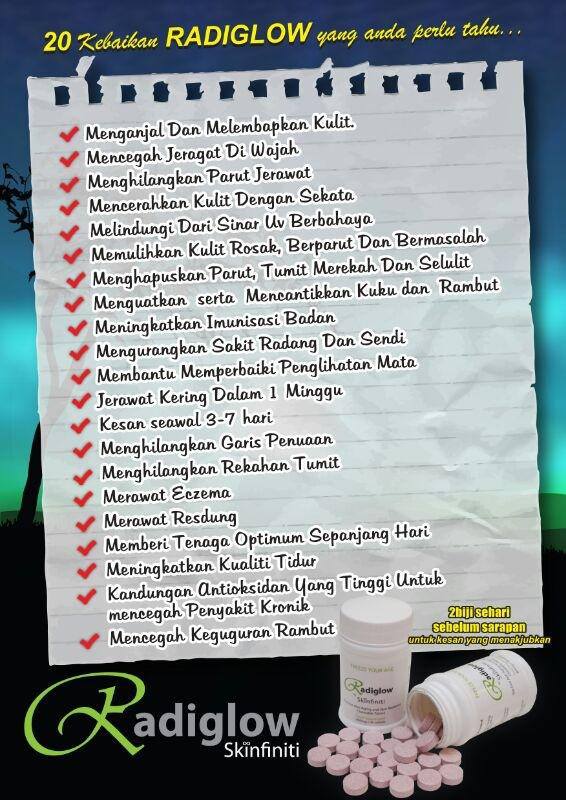 20 Kebaikan RADIGLOW yang anda perlu tahu...
Menganjal Dan Melembapkan Kulit.
Mencegah Jeragat Di Wajah
Menghilangkan Parut Jerawat
Mencerahkan Kulit Dengan Sekata
Melindungi Dari Sinar Uv Berbahaya
Memulihkan Kulit Rosak, Berparut Dan Bermasalah
Menghapuskan Parut, Tumit Merekah Dan Selulit
Menguatkan serta Mencantikkan Kuku dan Rambut
Meningkatkan Imunisasi Badan
Mengurangkan Sakit Radang Dan Sendi
Membantu Memperbaiki Penglihatan Mata
Jerawat Kering Dalam 1 Minggu
Kesan seawal 3-7 hari
Menghilangkan Garis Penuaan
Menghilangkan Rekahan Tumit
Merawat Eczema
Merawat Resdung
Memberi Tenaga Optimum Sepanjang Hari
Meningkatkan Kualiti Tidur
Kandungan Antioksidan Yang Tinggi Untuk
mencegah Penyakit Kronik
Mencegah Keguguran Rambut
2biji sehari
sebelum sarapan
untuk kesan yang menakjubkan
FREEZE YOUR AGE
Radiglow
Skinfiniti
Radiglow
Radiglow
Skinfiniti